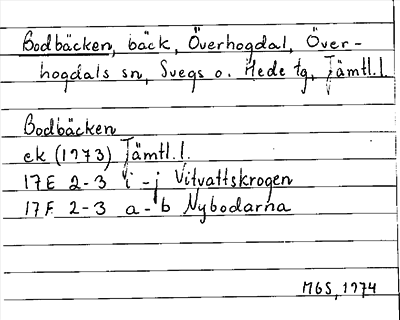 Bodbäcken, bäck, Överhogdal, Över-
hogdals sn, Svegs o. Hede tg, Jämtl.l.
Bodbäcken
ek (1973) Jämtl.l.
17E 2-3 i-j Vitvattskrogen
17F 2-3 a-b Nybodarna
MGS, 1974